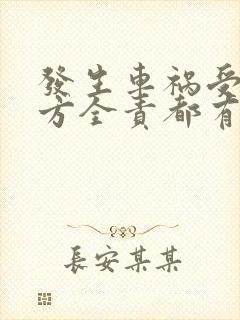 發生車祸受
方全責都有
長安某某